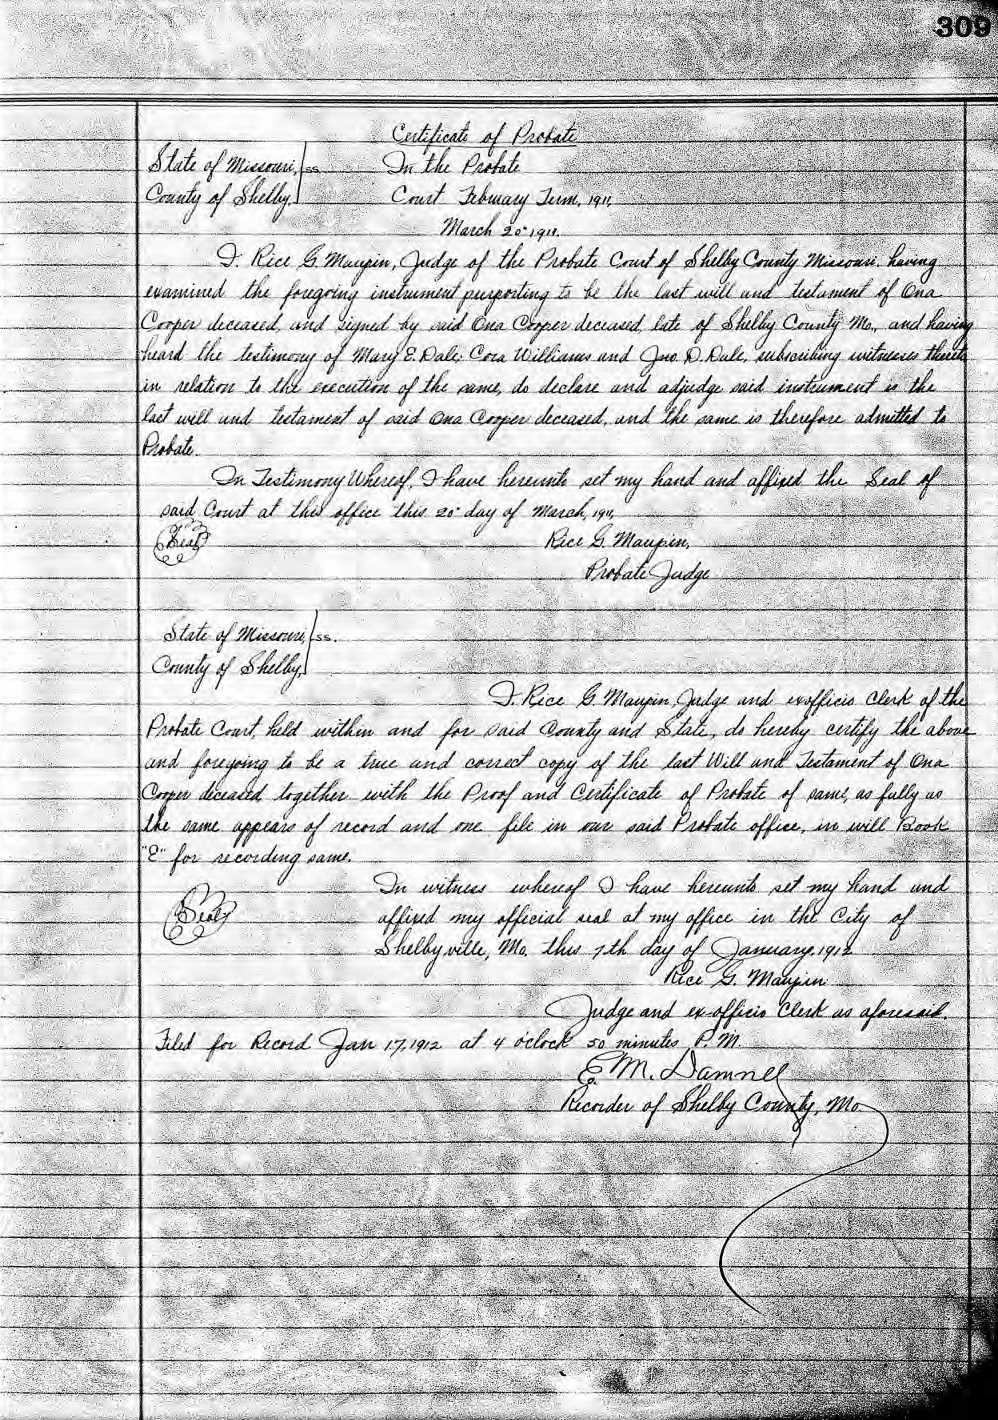 309
Certificate of Probate
State of Missouri, ss. In the Probate
County of Shelby. Court February Term, 1911,
March 20" 1911.
I. Rice G. Maupin, Judge of the Probate Court of Shelby County Missouri. having
examined the foregoing instrument purporting to be the last will and testament of Ona
Cooper deceased, and signed by said Ona Cooper deceased, late of Shelby County Mo., and having
heard the testimony of Mary E. Dale, Cora Williams and Jno. D. Dale, subscribing witnesses thereto
in relation to the execution of the same, do declare and adjudge said instrument is the
last will and testament of said Ona Cooper deceased, and the same is therefore admitted to
Probate.
In Testimony Whereof, I have hereunto set my hand and affixed the Seal of
said Court at this office this 20" day of March, 1911,
Seal Rice G. Maupin,
Probate Judge
State of Missouri, ss.
County of Shelby,
I. Rice G. Maupin, Judge and exofficio Clerk of the
Probate Court, held within and for said County and State, do hereby certify the above
and foregoing to be a true and correct copy of the last Will and Testament of Ona
Cooper deceased, together with the Proof and Certificate of Probate of same, as fully as
the same appears of record and one file in our said Probate office, in will Book
"E" for recording same.
In witness whereof I have hereunto set my hand and
Seal affixed my official seal at my office in the City of
Shelbyville, Mo. this 7th day of January. 1912
Rice G. Maupin
Judge and ex-officio Clerk as aforesaid.
Filed for Record Jan 17, 1912 at 4 o'clock 50 minutes P. M.
E. M. Damrel
Recorder of Shelby County, Mo